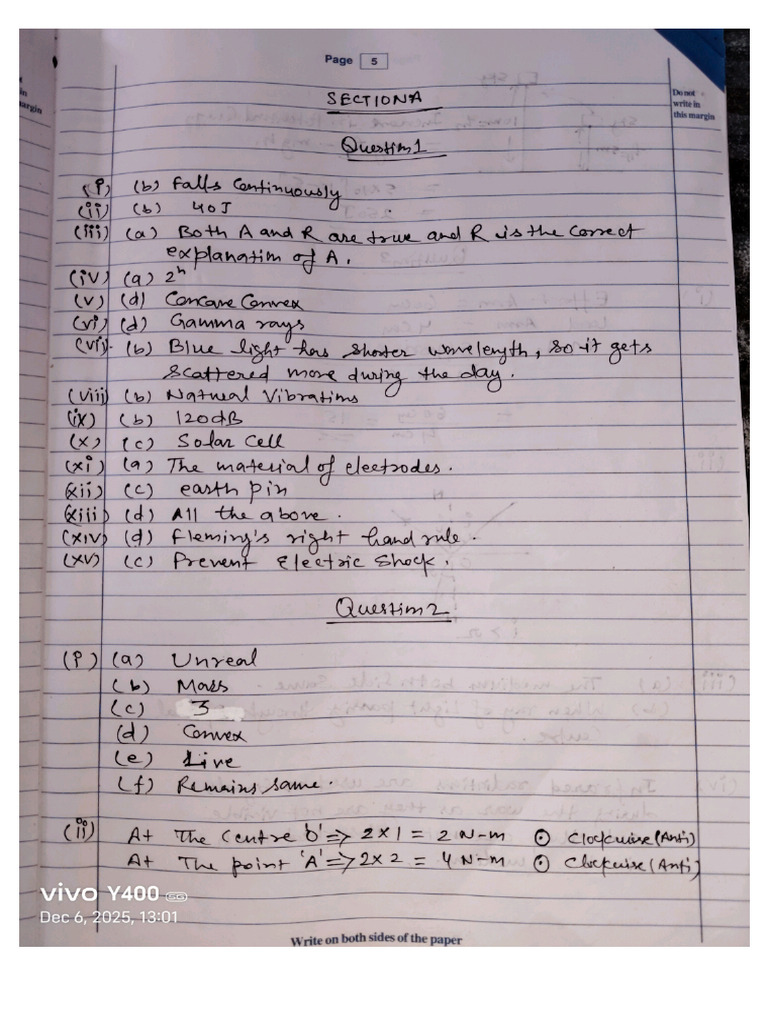 Page 5
SECTION A
Do not
write in
this margin
in
margin
Question 1
(i) (b) Falls Continuously
(ii) (b) 40J
(iii) (a) Both A and R are true and R is the correct
explanation of A.
(iv) (a) 2ⁿ
(v) (d) Concave Convex
(vi) (d) Gamma rays
(vii). (b) Blue light has shorter wavelength, so it gets
scattered more during the day.
(viii) (b) Natural Vibrations
(ix) (b) 120dB
(x) (c) Solar Cell
(xi) (a) The material of electrodes.
(xii) (c) earth pin
(xiii) (d) All the above.
(xiv) (d) Fleming's right hand rule.
(xv) (c) Prevent Electric Shock.
Question 2
(i) (a) Unreal
(b) Mass
(c) 3
(d) Convex
(e) Live
(f) Remains same.
(ii) At The Centre 'O' => 2 x 1 = 2 N-m ⊙ Clockwise (Anti)
At The point 'A' => 2 x 2 = 4 N-m ⊙ Clockwise (Anti)
vivo Y400 5G
Dec 6, 2025, 13:01
Write on both sides of the paper